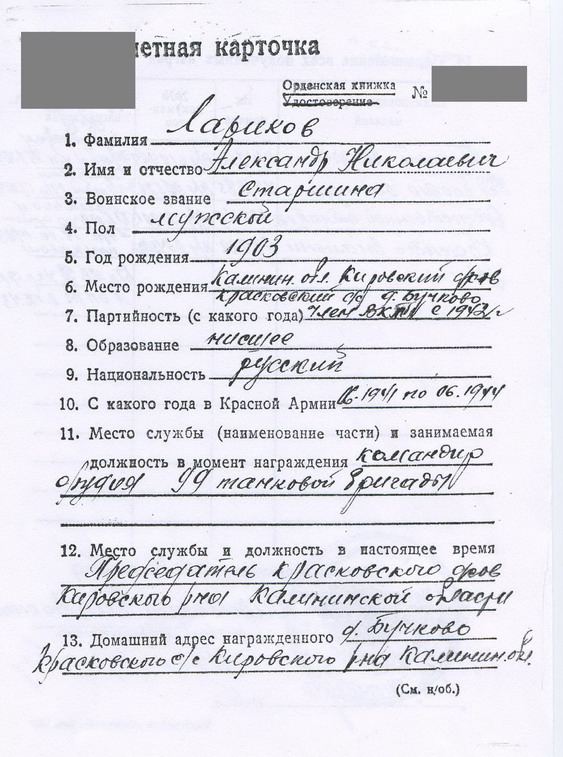 етная карточка
Орденская книжка
Удостоверение №
1. Фамилия Лариков
2. Имя и отчество Александр Николаевич
3. Воинское звание старшина
4. Пол мужской
5. Год рождения 1903
6. Место рождения Калинин. обл. Кировский р-он
Красковский с/с д. Бучково
7. Партийность (с какого года) член ВКПб с 1942 г
8. Образование низшее
9. Национальность русский
10. С какого года в Красной Армии 06.1941 по 06.1944
11. Место службы (наименование части) и занимаемая
должность в момент награждения командир
орудия 99 танковой бригады
12. Место службы и должность в настоящее время
Председатель Красковского
Кировского р-на Калининской области
13. Домашний адрес награжденного д. Бучково
Красковского с/с Кировского р-на Калинин. обл.
(См. н/об.)